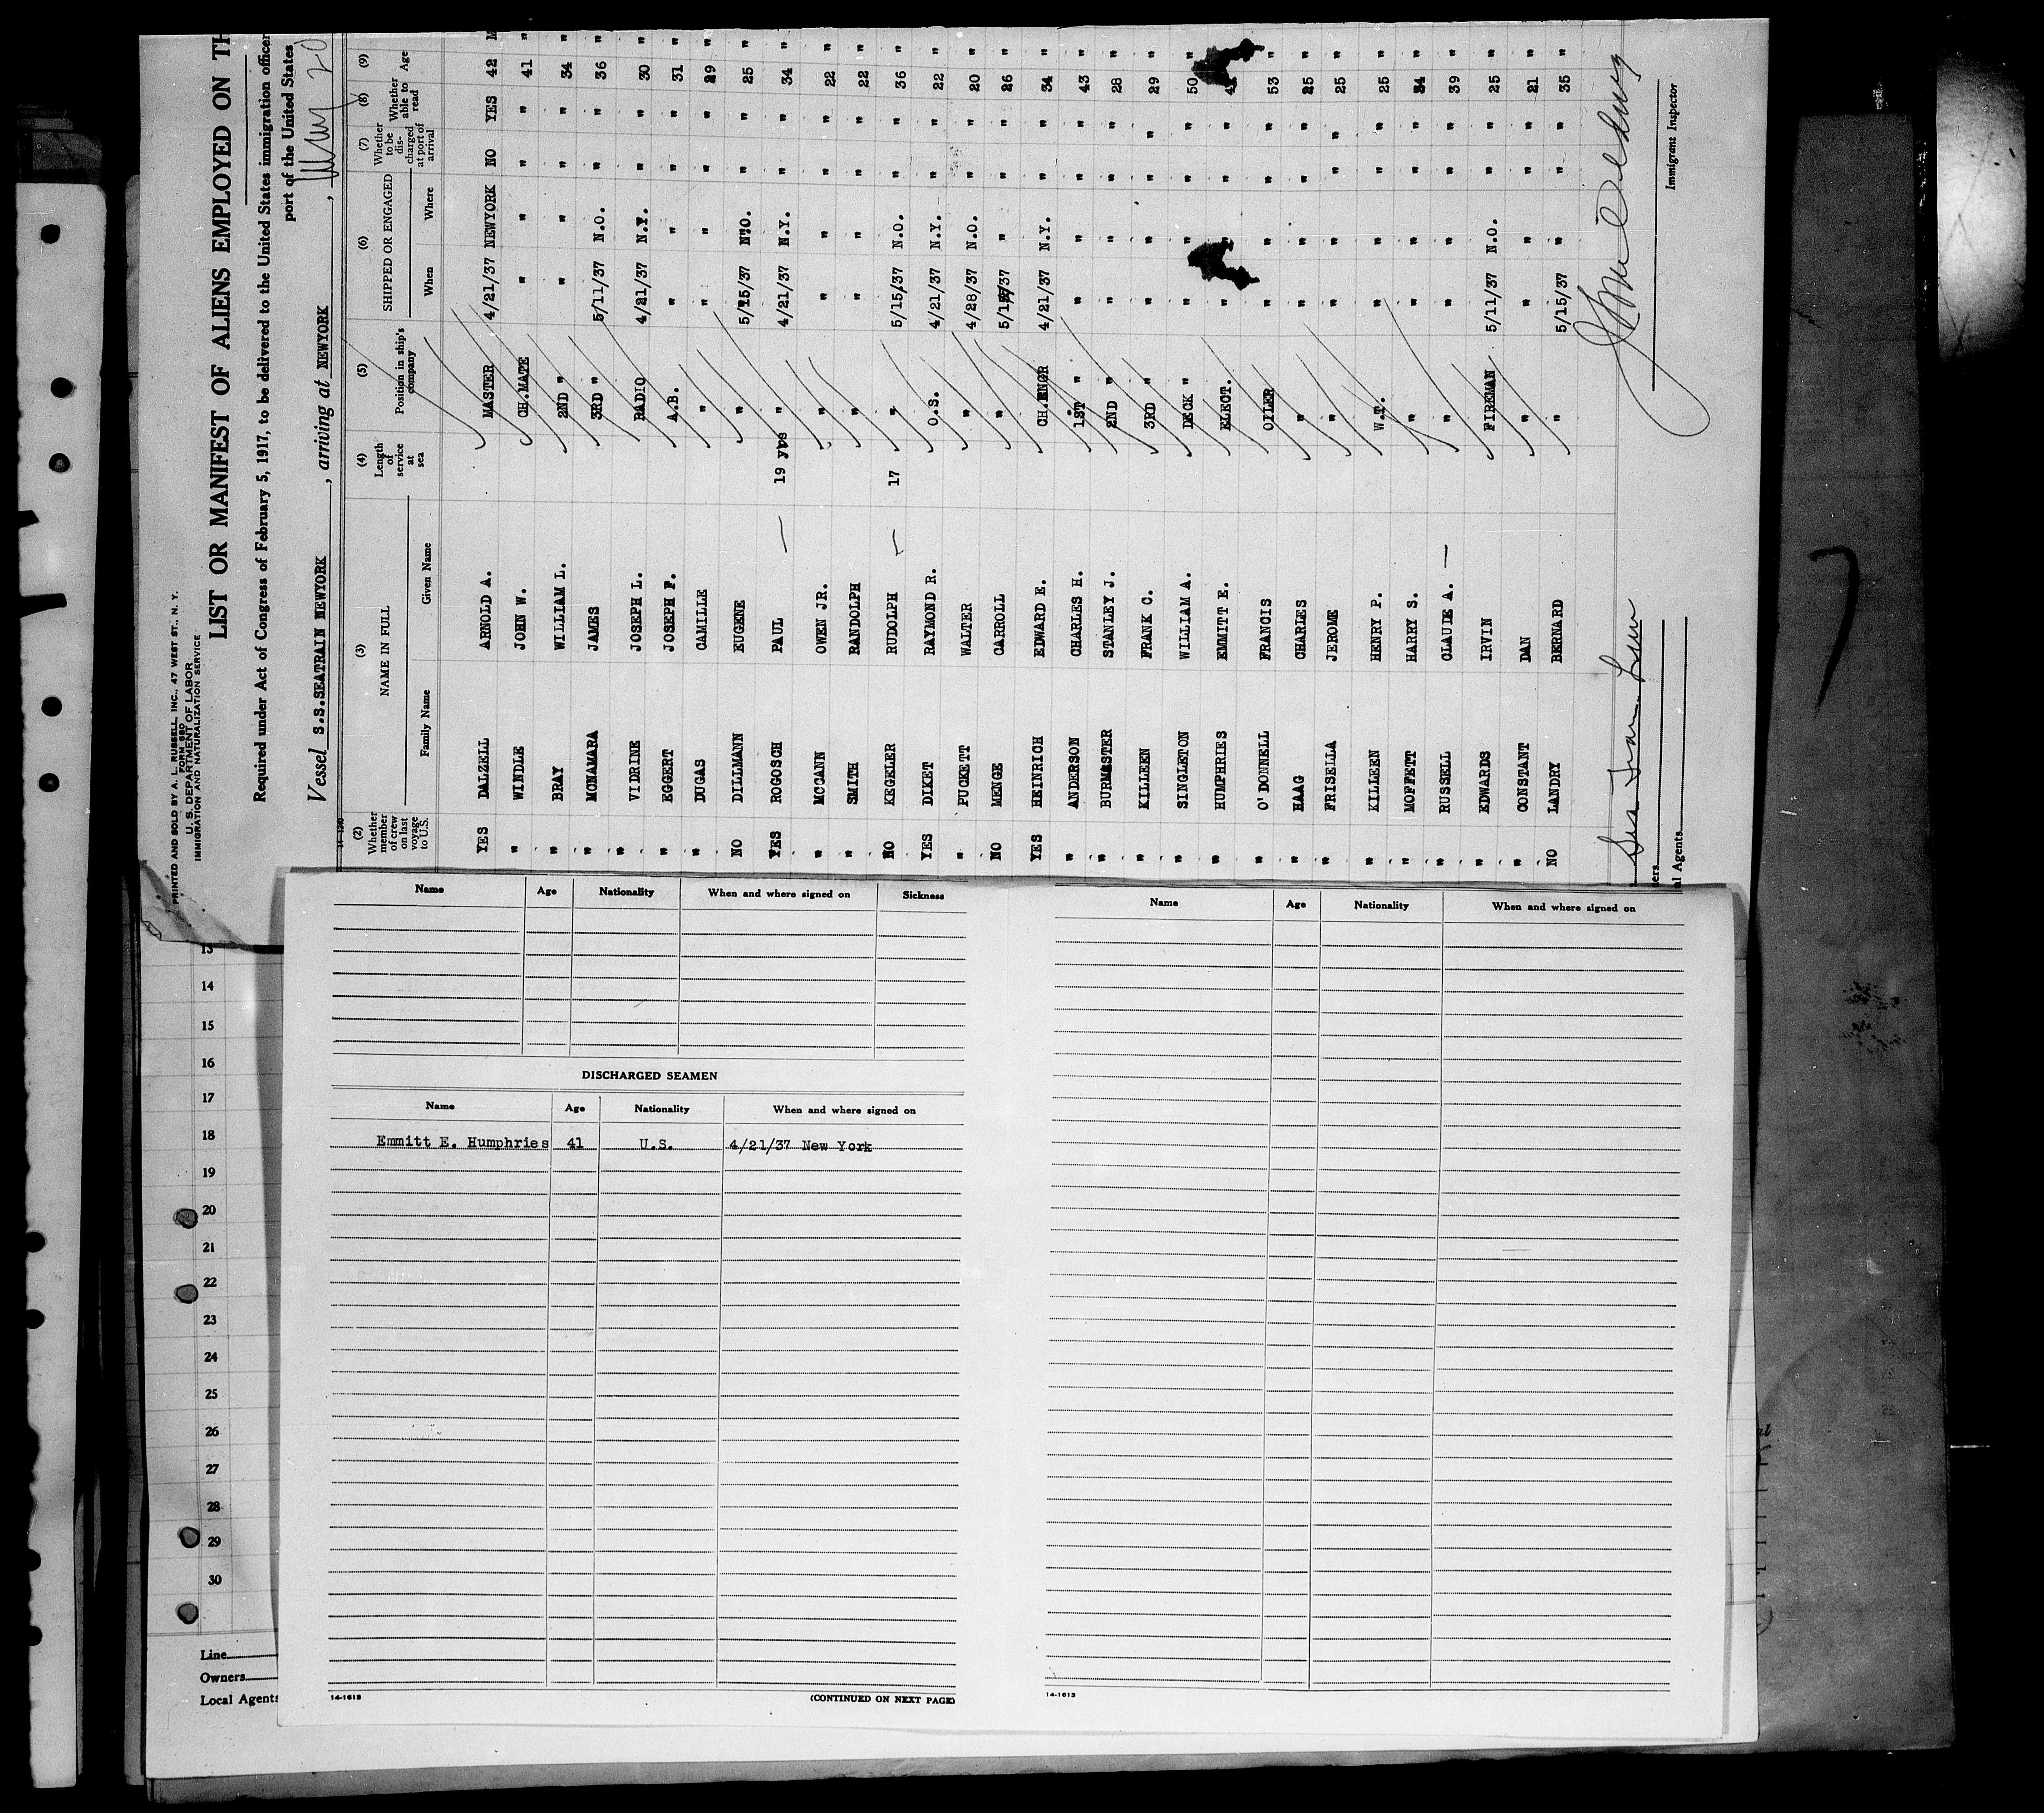 PRINTED AND SOLD BY A. L. RUSSELL, INC., 47 WEST ST., N. Y.
FORM 680
U. S. DEPARTMENT OF LABOR
IMMIGRATION AND NATURALIZATION SERVICE
LIST OR MANIFEST OF ALIENS EMPLOYED ON TH
Required under Act of Congress of February 5, 1917, to be delivered to the United States immigration officer
port of the United States
Vessel S.S.SEATRAIN NEWYORK, arriving at NEWYORK,
(2) Whether member of crew on last voyage to U.S. (3) NAME IN FULL Family Name Given Name (4) Length of service at sea (5) Position in ship's company (6) SHIPPED OR ENGAGED When Where (7) Whether to be discharged at port of arrival (8) Whether able to read (9) Age
YES DALZELL ARNOLD A. MASTER 4/21/37 NEWYORK NO YES 42 M
" WINDLE JOHN W. CH.MATE " " " " 41 "
" BRAY WILLIAM L. 2ND " " " " " 34 "
" MCNAMARA JAMES 3RD " 5/11/37 N.O. " " 36 "
" VIDRINE JOSEPH L. RADIO 4/21/37 N.Y. " " 30 "
" EGGERT JOSEPH F. A.B. " " " " 31 "
" DUGAS CAMILLE " " " " " 29 "
NO DILLMANN EUGENE " 5/15/37 N.O. " " 25 "
YES ROGOSCH PAUL 19 yrs " 4/21/37 N.Y. " " 34 "
" MCCANN OWEN JR. " " " " " 22 "
" SMITH RANDOLPH " " " " " 22 "
NO KEGELER RUDOLPH 17 " 5/15/37 N.O. " " 36 "
YES DIKET RAYMOND R. O.S. 4/21/37 N.Y. " " 22 "
" PUCKETT WALTER " 4/28/37 N.O. " " 20 "
NO MENGE CARROLL " " " " 26 "
YES HEINRICH EDWARD E. CH.ENGR 4/21/37 N.Y. " " 34 "
" ANDERSON CHARLES H. 1ST " " " " " 43 "
" BURMASTER STANLEY J. 2ND " " " " " 28 "
" KILLEEN FRANK C. 3RD " " " " " 29 "
" SINGLETON WILLIAM A. DECK " " " " " 50 "
" HUMPHRIES EMMITT E. ELECT. " " " "
" O'DONNELL FRANCIS OILER " " " " 53 "
" HAAG CHARLES " " " " " 25 "
" FRISELLA JEROME " " " " " 25 "
" KILLEEN HENRY P. W.T. " " " " 25 "
" MOFFETT HARRY S. " " " " " 24 "
" RUSSELL CLAUDE A. " " " " " 39 "
" EDWARDS IRVIN FIREMAN 5/11/37 N.O. " " 25 "
" CONSTANT DAN " " " " " 21 "
NO LANDRY BERNARD " 5/15/37 " " " 35 "
Sea Train Line
ners
al Agents
Immigrant Inspector
Name Age Nationality When and where signed on Sickness
DISCHARGED SEAMEN
Name Age Nationality When and where signed on
Emmitt E. Humphries 41 U.S. 4/21/37 New York
14-1613
(CONTINUED ON NEXT PAGE)
Name Age Nationality When and where signed on
14-1613
13
14
15
16
17
18
19
20
21
22
23
24
25
26
27
28
29
30
Line
Owners
Local Agents